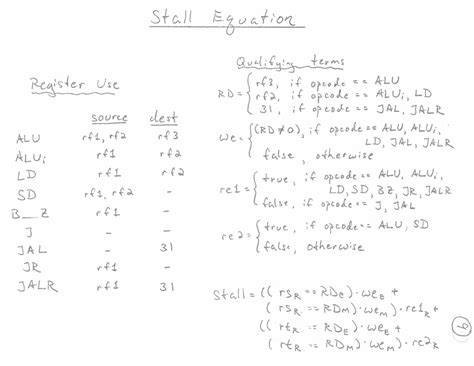 Stall Equation
Register Use
source dest
ALU rf1, rf2 rf3
ALUi rf1 rf2
LD rf1 rf2
SD rf1, rf2 -
B__Z rf1 -
J - -
JAL - 31
JR rf1 -
JALR rf1 31
Qualifying terms
RD = { rf3, if opcode == ALU
rf2, if opcode == ALUi, LD
31, if opcode == JAL, JALR
we = { (RD≠0), if opcode == ALU, ALUi,
LD, JAL, JALR
false, otherwise
re1 = { true, if opcode == ALU, ALUi,
LD, SD, BZ, JR, JALR
false, if opcode == J, JAL
re2 = { true, if opcode == ALU, SD
false, otherwise
Stall = ((rsR == RDE)·weE +
(rsR == RDM)·weM)·re1R +
((rtR == RDE)·weE +
(rtR == RDM)·weM)·re2R